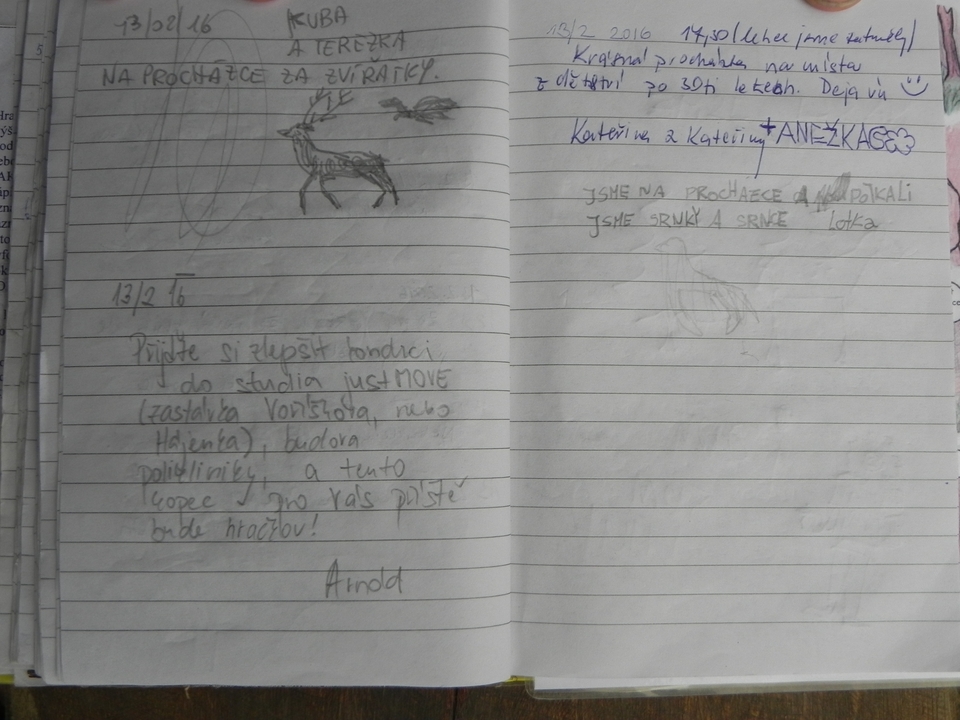 13/02/16 KUBA
A TEREZKA
NA PROCHÁZCE ZA ZVÍŘÁTKY.
13/2 16
Přijďte si zlepšit kondici
do studia justMOVE
(zastávka Voříškova, nebo
Hájenka), budova
polikliniky, a tento
kopec pro vás příště
bude hračkou!
Arnold
13/2 2016 17,30 (lehce jsme zatměly)
Krásná procházka na místa
z dětství po 30ti letech. Deja vu
Kateřina a Kateřina + ANEŽKA
JSME NA PROCHÁZCE A POTKALI
JSME SRNKY A SRNCE Lotka